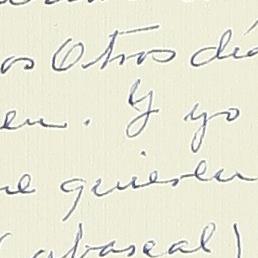 os Otros día
en. Y yo
ue quiesen
(abascal)